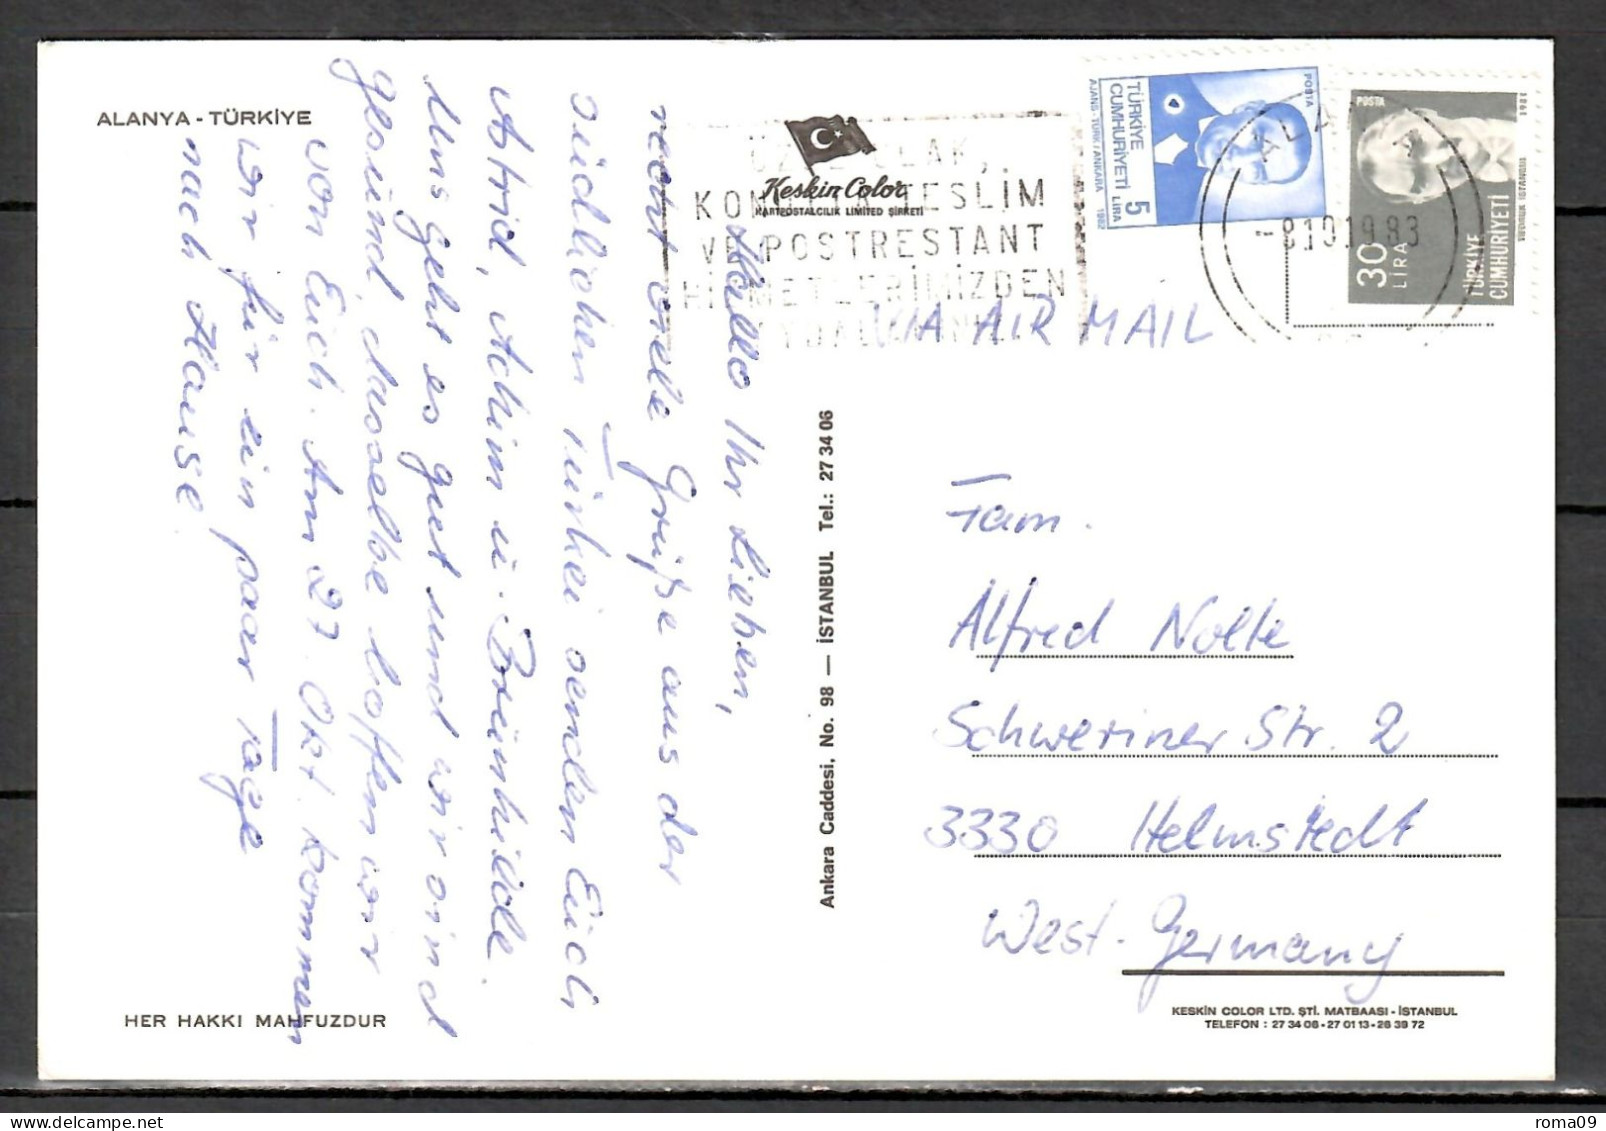 ALANYA - TÜRKİYE
Hallo Ihr Lieben,
recht viele Grüße aus der
südlichen Türkei senden Euch
Astrid, Achim u. Brünhilde.
Uns geht es gut und wir sind
gesund, dasselbe hoffen wir
von Euch. Am 27. Okt. kommen
wir für ein paar Tage
nach Hause.
HER HAKKI MAHFUZDUR
Keskin Color
KARTPOSTALCILIK LIMITED ŞİRKETİ
Ankara Caddesi, No. 98 — İSTANBUL Tel.: 27 34 06
TESLİM
VE POSTRESTANT
HİZMETLERİMİZDEN
-8.10.1983
POSTA
TÜRKİYE
CUMHURİYETİ
5
LİRA
AJANS-TÜRK/ANKARA 1982
POSTA
1981
30
LİRA
TÜRKİYE
CUMHURİYETİ
VIA AIR MAIL
Fam.
Alfred Nolte
Schweriner Str. 2
3330 Helmstedt
West-Germany
KESKİN COLOR LTD. ŞTİ. MATBAASI - İSTANBUL
TELEFON : 27 34 06 - 27 01 13 - 26 39 72
roma09